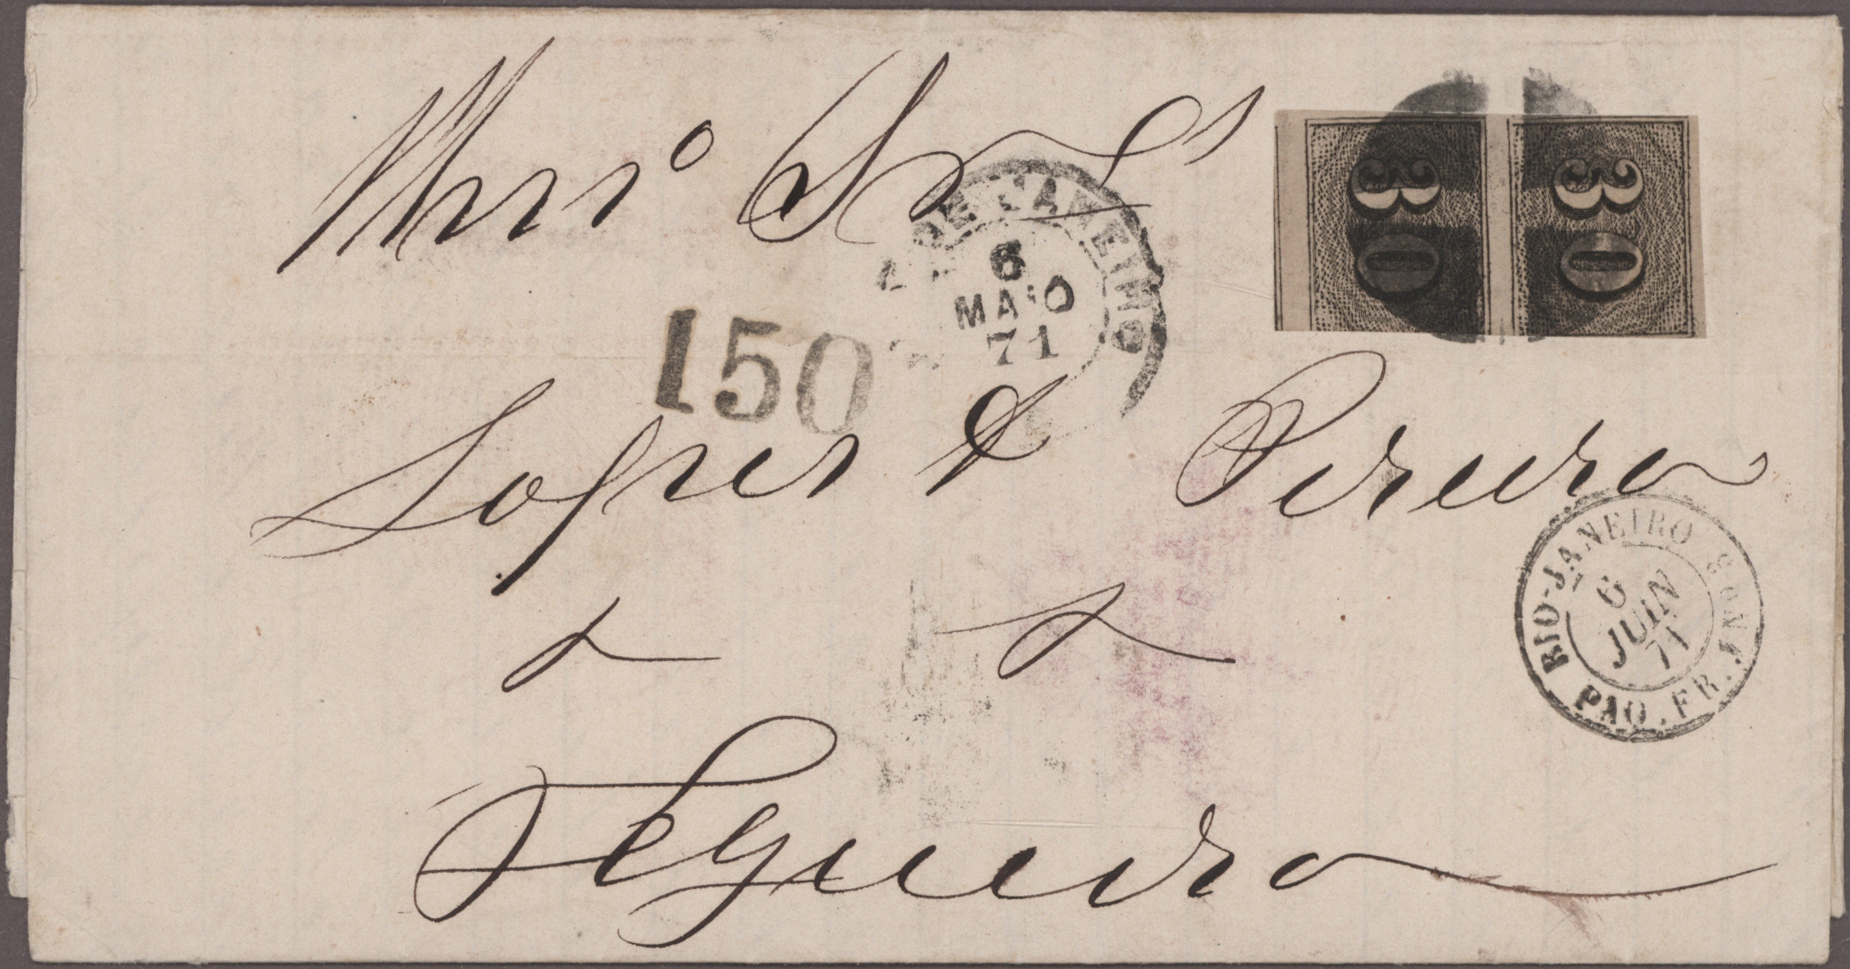 Lopes & Pereira
Figueira
150
DE JANEIRO
6
MAIO
71
30
30
RIO-JANEIRO
6
JUIN
71
PAQ. FR. J Nº 3